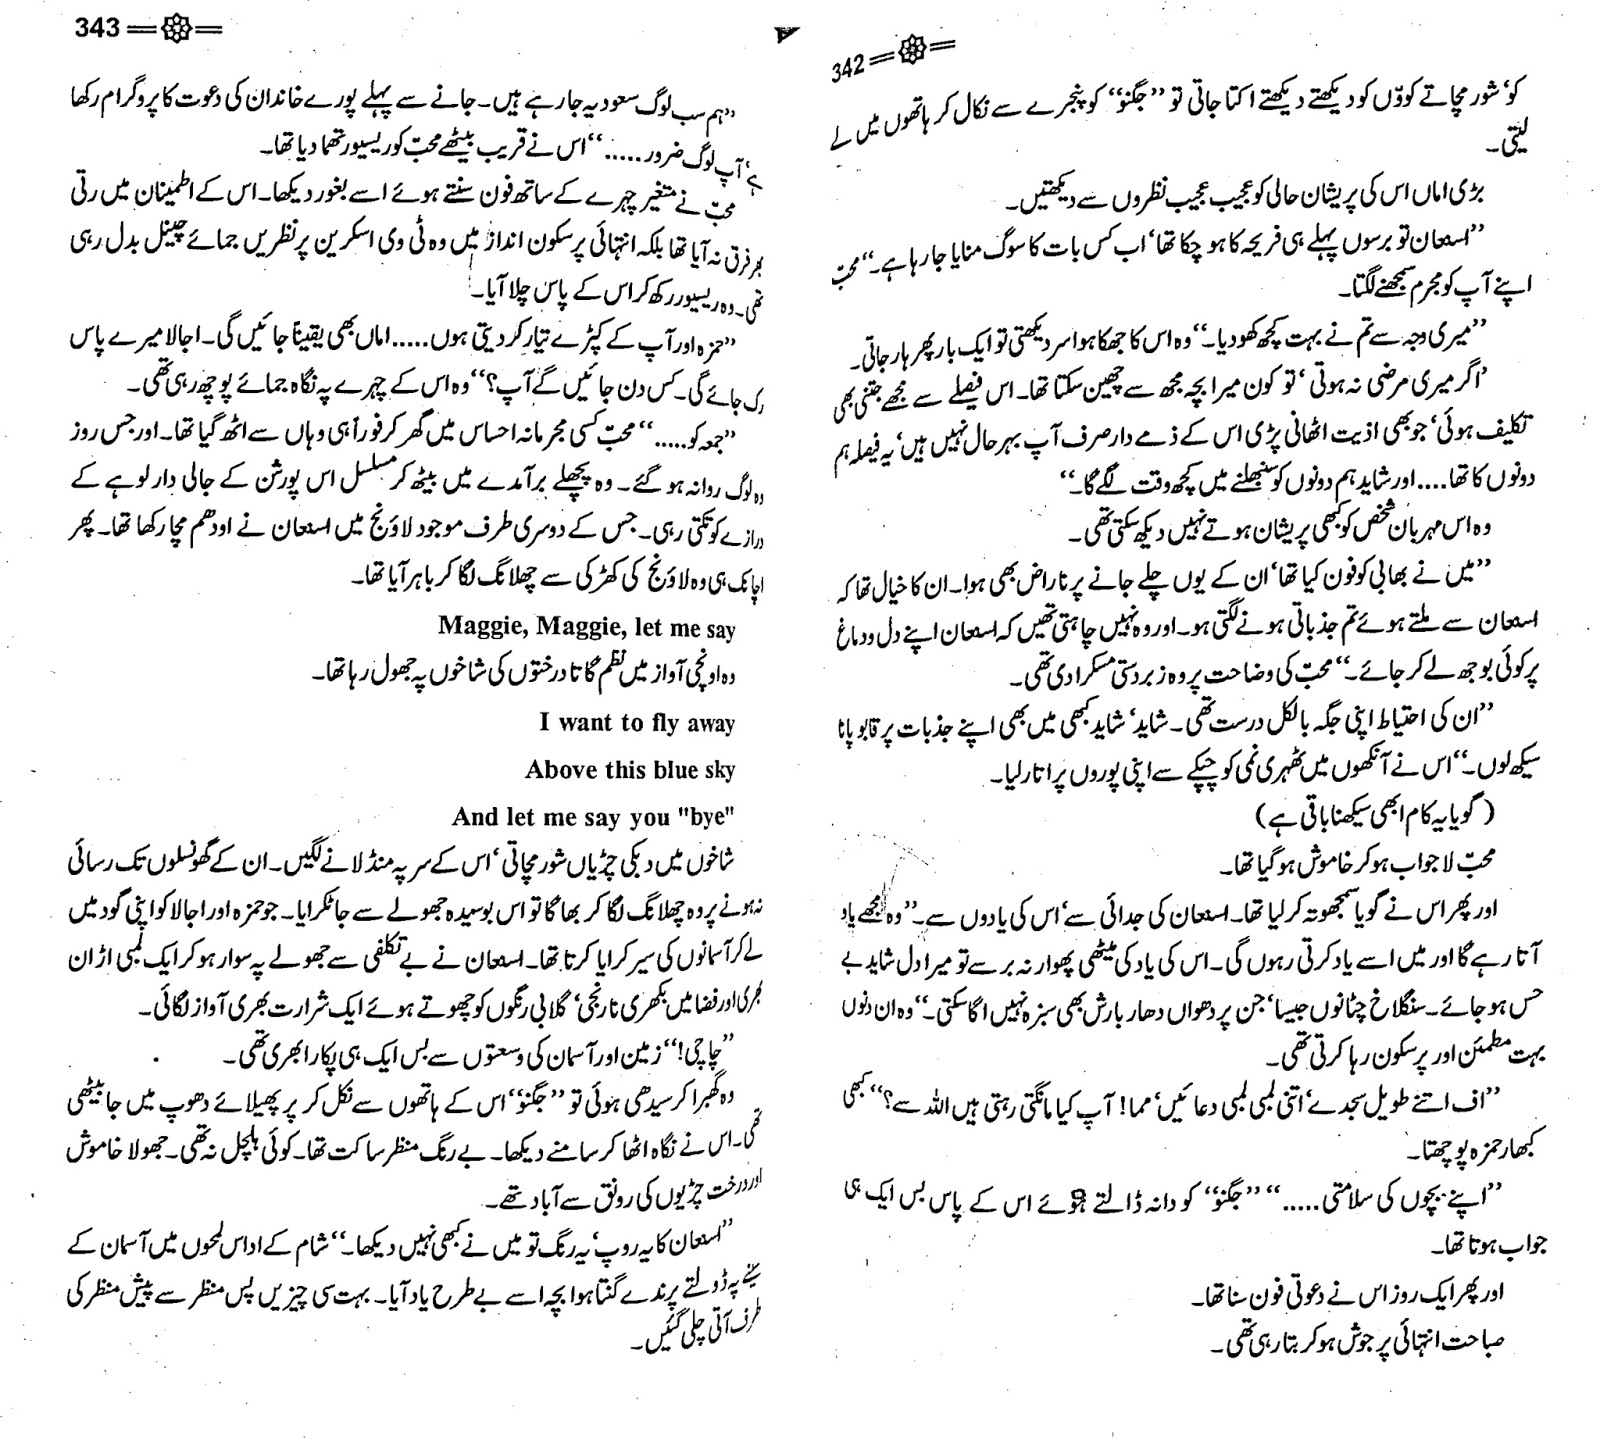 342
کو‘ شور مچاتے کوّوں کو دیکھتے دیکھتے اکتا جاتی تو ’’جگنو‘‘ کو پنجرے سے نکال کر ہاتھوں میں لے
لیتی۔
بڑی اماں اس کی پریشان حالی کو عجیب عجیب نظروں سے دیکھتیں۔
’’اسعان تو برسوں پہلے ہی فریحہ کا ہو چکا تھا‘ اب کس بات کا سوگ منایا جا رہا ہے۔‘‘ محبّ
اپنے آپ کو مجرم سمجھنے لگتا۔
’’میری وجہ سے تم نے بہت کچھ کھو دیا۔‘‘ وہ اس کا جھکا ہوا سر دیکھتی تو ایک بار پھر ہار جاتی۔
’اگر میری مرضی نہ ہوتی‘ تو کون میرا بچہ مجھ سے چھین سکتا تھا۔ اس فیصلے سے مجھے جتنی بھی
تکلیف ہوئی‘ جو بھی اذیت اٹھانی پڑی اس کے ذمے دار صرف آپ بہرحال نہیں ہیں‘ یہ فیصلہ ہم
دونوں کا تھا.... اور شاید ہم دونوں کو سنبھلنے میں کچھ وقت لگے گا۔‘‘
وہ اس مہربان شخص کو کبھی پریشان ہوتے نہیں دیکھ سکتی تھی۔
’’میں نے بھابی کو فون کیا تھا‘ ان کے یوں چلے جانے پر ناراض بھی ہوا۔ ان کا خیال تھا کہ
اسعان سے ملتے ہوئے تم جذباتی ہونے لگتی ہو۔ اور وہ نہیں چاہتی تھیں کہ اسعان اپنے دل و دماغ
پر کوئی بوجھ لے کر جائے۔‘‘ محبّ کی وضاحت پر وہ زبردستی مسکرا دی تھی۔
’’ان کی احتیاط اپنی جگہ بالکل درست تھی۔ شاید‘ شاید کبھی میں بھی اپنے جذبات پر قابو پانا
سیکھ لوں۔‘‘ اس نے آنکھوں میں ٹھہری نمی کو چپکے سے اپنی پوروں پر اتار لیا۔
(گویا یہ کام ابھی سیکھنا باقی ہے)
محبّ لاجواب ہو کر خاموش ہو گیا تھا۔
اور پھر اس نے گویا سمجھوتہ کر لیا تھا۔ اسعان کی جدائی سے‘ اس کی یادوں سے۔ ’’وہ مجھے یاد
آتا رہے گا اور میں اسے یاد کرتی رہوں گی۔ اس کی یاد کی میٹھی پھوار نہ برسے تو میرا دل شاید بے
حس ہو جائے۔ سنگلاخ چٹانوں جیسا‘ جن پر دھواں دھار بارش بھی سبزہ نہیں اگا سکتی۔‘‘ وہ ان دنوں
بہت مطمئن اور پرسکون رہا کرتی تھی۔
’’اف اتنے طویل سجدے‘ اتنی لمبی لمبی دعائیں‘ مما! آپ کیا مانگتی رہتی ہیں اللہ سے؟‘‘ کبھی
کبھار حمزہ پوچھتا۔
’’اپنے بچوں کی سلامتی.....‘‘ ’’جگنو‘‘ کو دانہ ڈالتے ہوئے اس کے پاس بس ایک ہی
جواب ہوتا تھا۔
اور پھر ایک روز اس نے دعوتی فون سنا تھا۔
صباحت انتہائی پرجوش ہو کر بتا رہی تھی۔
343
’’ہم سب لوگ سعودیہ جا رہے ہیں۔ جانے سے پہلے پورے خاندان کی دعوت کا پروگرام رکھا
ہے‘ آپ لوگ ضرور.....‘‘ اس نے قریب بیٹھے محبّ کو ریسیور تھما دیا تھا۔
محبّ نے متغیر چہرے کے ساتھ فون سنتے ہوئے اسے بغور دیکھا۔ اس کے اطمینان میں رتی
بھر فرق نہ آیا تھا بلکہ انتہائی پرسکون انداز میں وہ ٹی وی اسکرین پر نظریں جمائے چینل بدل رہی
تھی۔ وہ ریسیور رکھ کر اس کے پاس چلا آیا۔
’’حمزہ اور آپ کے کپڑے تیار کر دیتی ہوں..... اماں بھی یقیناً جائیں گی۔ اجالا میرے پاس
رک جائے گی۔ کس دن جائیں گے آپ؟‘‘ وہ اس کے چہرے پہ نگاہ جمائے پوچھ رہی تھی۔
’’جمعہ کو.....‘‘ محبّ کسی مجرمانہ احساس میں گھر کر فوراً ہی وہاں سے اٹھ گیا تھا۔ اور جس روز
وہ لوگ روانہ ہو گئے۔ وہ پچھلے برآمدے میں بیٹھ کر مسلسل اس پورشن کے جالی دار لوہے کے
دروازے کو تکتی رہی۔ جس کے دوسری طرف موجود لاؤنج میں اسعان نے اودھم مچا رکھا تھا۔ پھر
اچانک ہی وہ لاؤنج کی کھڑکی سے چھلانگ لگا کر باہر آیا تھا۔
Maggie, Maggie, let me say
وہ اونچی آواز میں نظم گاتا درختوں کی شاخوں پہ جھول رہا تھا۔
I want to fly away
Above this blue sky
And let me say you "bye"
شاخوں میں دبکی چڑیاں شور مچاتی‘ اس کے سر پہ منڈلانے لگیں۔ ان کے گھونسلوں تک رسائی
نہ ہونے پر وہ چھلانگ لگا کر بھاگا تو اس بوسیدہ جھولے سے جا ٹکرایا۔ جو حمزہ اور اجالا کو اپنی گود میں
لے کر آسمانوں کی سیر کرایا کرتا تھا۔ اسعان نے بے تکلفی سے جھولے پہ سوار ہو کر ایک لمبی اڑان
بھری اور فضا میں بکھری نارنجی‘ گلابی رنگوں کو چھوتے ہوئے ایک شرارت بھری آواز لگائی۔
’’چاچی!‘‘ زمین اور آسمان کی وسعتوں سے بس ایک ہی پکار ابھری تھی۔
وہ گھبرا کر سیدھی ہوئی تو ’’جگنو‘‘ اس کے ہاتھوں سے نکل کر پر پھیلائے دھوپ میں جا بیٹھی
تھی۔ اس نے نگاہ اٹھا کر سامنے دیکھا۔ بے رنگ منظر ساکت تھا۔ کوئی ہلچل نہ تھی۔ جھولا خاموش
اور درخت چڑیوں کی رونق سے آباد تھے۔
’’اسعان کا یہ روپ‘ یہ رنگ تو میں نے کبھی نہیں دیکھا۔‘‘ شام کے اداس لمحوں میں آسمان کے
سینے پہ ڈولتے پرندے گنتا ہوا بچہ اسے بے طرح یاد آیا۔ بہت سی چیزیں پس منظر سے پیش منظر کی
طرف آتی چلی گئیں۔